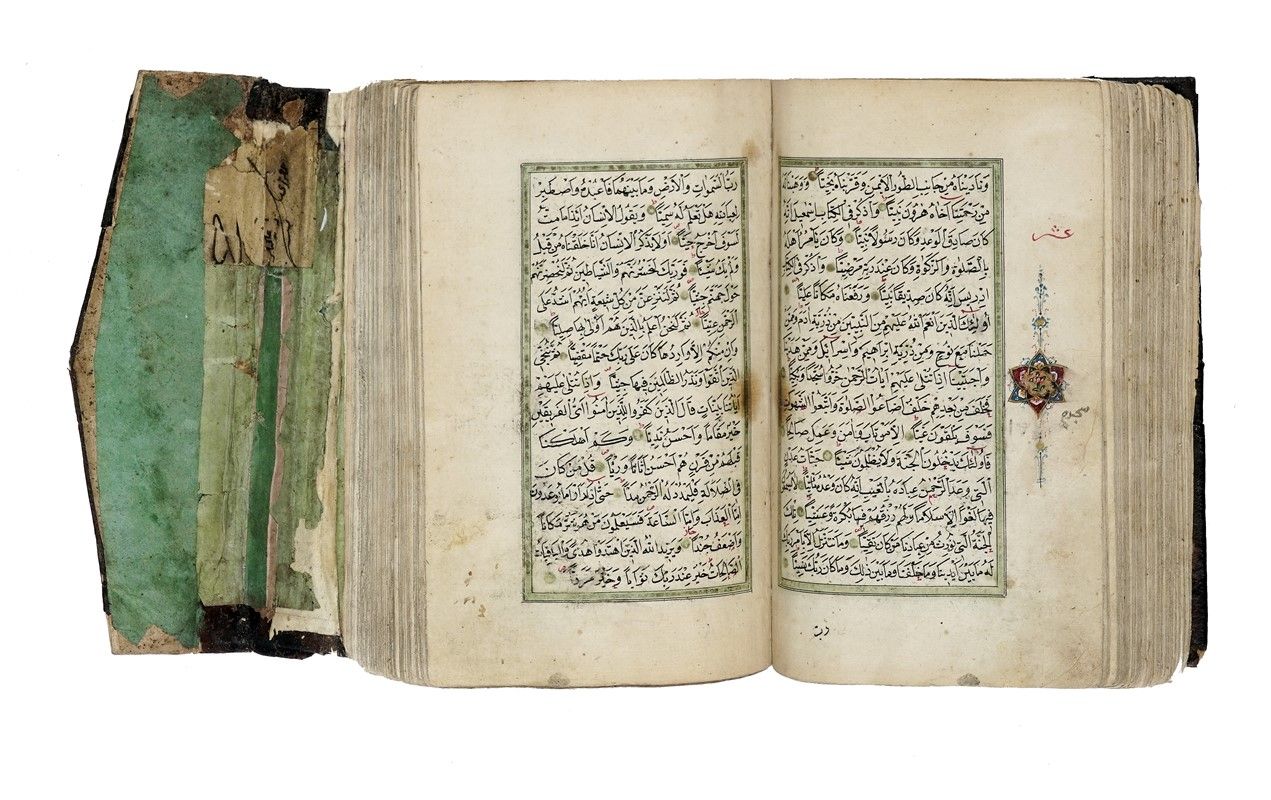 وَنَادَيْنَاهُ مِنْ جَانِبِ الطُّورِ الْاَيْمَنِ وَقَرَّبْنَاهُ نَجِيًّا وَوَهَبْنَا لَهُ
مِنْ رَحْمَتِنَا اَخَاهُ هٰرُونَ نَبِيًّا وَاذْكُرْ فِي الْكِتَابِ اِسْمٰعِيلَ اِنَّهُ
كَانَ صَادِقَ الْوَعْدِ وَكَانَ رَسُولًا نَبِيًّا وَكَانَ يَأْمُرُ اَهْلَهُ
بِالصَّلٰوةِ وَالزَّكٰوةِ وَكَانَ عِنْدَ رَبِّهِ مَرْضِيًّا وَاذْكُرْ فِي الْكِتَابِ
اِدْرِيسَ اِنَّهُ كَانَ صِدِّيقًا نَبِيًّا وَرَفَعْنَاهُ مَكَانًا عَلِيًّا
اُولٰئِكَ الَّذِينَ اَنْعَمَ اللهُ عَلَيْهِمْ مِنَ النَّبِيِّينَ مِنْ ذُرِّيَّةِ اٰدَمَ وَمِمَّنْ
حَمَلْنَا مَعَ نُوحٍ وَمِنْ ذُرِّيَّةِ اِبْرَاهِيمَ وَاِسْرَائِلَ وَمِمَّنْ هَدَيْنَا
وَاجْتَبَيْنَا اِذَا تُتْلٰى عَلَيْهِمْ اٰيَاتُ الرَّحْمٰنِ خَرُّوا سُجَّدًا وَبُكِيًّا
فَخَلَفَ مِنْ بَعْدِهِمْ خَلْفٌ اَضَاعُوا الصَّلٰوةَ وَاتَّبَعُوا الشَّهَوَاتِ
فَسَوْفَ يَلْقَوْنَ غَيًّا اِلَّا مَنْ تَابَ وَاٰمَنَ وَعَمِلَ صَالِحًا
فَاُولٰئِكَ يَدْخُلُونَ الْجَنَّةَ وَلَا يُظْلَمُونَ شَيْئًا جَنَّاتِ عَدْنٍ
الَّتِي وَعَدَ الرَّحْمٰنُ عِبَادَهُ بِالْغَيْبِ اِنَّهُ كَانَ وَعْدُهُ مَأْتِيًّا لَا يَسْمَعُونَ
فِيهَا لَغْوًا اِلَّا سَلَامًا وَلَهُمْ رِزْقُهُمْ فِيهَا بُكْرَةً وَعَشِيًّا تِلْكَ
الْجَنَّةُ الَّتِي نُورِثُ مِنْ عِبَادِنَا مَنْ كَانَ تَقِيًّا وَمَا نَتَنَزَّلُ اِلَّا بِاَمْرِ رَبِّكَ
لَهُ مَا بَيْنَ اَيْدِينَا وَمَا خَلْفَنَا وَمَا بَيْنَ ذٰلِكَ وَمَا كَانَ رَبُّكَ نَسِيًّا
رب
عشر
رَبُّ السَّمٰوَاتِ وَالْاَرْضِ وَمَا بَيْنَهُمَا فَاعْبُدْهُ وَاصْطَبِرْ
لِعِبَادَتِهِ هَلْ تَعْلَمُ لَهُ سَمِيًّا وَيَقُولُ الْاِنْسَانُ ءَاِذَا مَا مِتُّ
لَسَوْفَ اُخْرَجُ حَيًّا اَوَلَا يَذْكُرُ الْاِنْسَانُ اَنَّا خَلَقْنَاهُ مِنْ قَبْلُ
وَلَمْ يَكُ شَيْئًا فَوَرَبِّكَ لَنَحْشُرَنَّهُمْ وَالشَّيَاطِينَ ثُمَّ لَنُحْضِرَنَّهُمْ
حَوْلَ جَهَنَّمَ جِثِيًّا ثُمَّ لَنَنْزِعَنَّ مِنْ كُلِّ شِيعَةٍ اَيُّهُمْ اَشَدُّ عَلَى
الرَّحْمٰنِ عِتِيًّا ثُمَّ لَنَحْنُ اَعْلَمُ بِالَّذِينَ هُمْ اَوْلٰى بِهَا صِلِيًّا
وَاِنْ مِنْكُمْ اِلَّا وَارِدُهَا كَانَ عَلٰى رَبِّكَ حَتْمًا مَقْضِيًّا ثُمَّ نُنَجِّي
الَّذِينَ اتَّقَوْا وَنَذَرُ الظَّالِمِينَ فِيهَا جِثِيًّا وَاِذَا تُتْلٰى عَلَيْهِمْ
اٰيَاتُنَا بَيِّنَاتٍ قَالَ الَّذِينَ كَفَرُوا لِلَّذِينَ اٰمَنُوا اَيُّ الْفَرِيقَيْنِ
خَيْرٌ مَقَامًا وَاَحْسَنُ نَدِيًّا وَكَمْ اَهْلَكْنَا
قَبْلَهُمْ مِنْ قَرْنٍ هُمْ اَحْسَنُ اَثَاثًا وَرِئْيًا قُلْ مَنْ كَانَ
فِي الضَّلَالَةِ فَلْيَمْدُدْ لَهُ الرَّحْمٰنُ مَدًّا حَتّٰى اِذَا رَاَوْا مَا يُوعَدُونَ
اِمَّا الْعَذَابَ وَاِمَّا السَّاعَةَ فَسَيَعْلَمُونَ مَنْ هُوَ شَرٌّ مَكَانًا
وَاَضْعَفُ جُنْدًا وَيَزِيدُ اللهُ الَّذِينَ اهْتَدَوْا هُدًى وَالْبَاقِيَاتُ
الصَّالِحَاتُ خَيْرٌ عِنْدَ رَبِّكَ ثَوَابًا وَخَيْرٌ مَرَدًّا